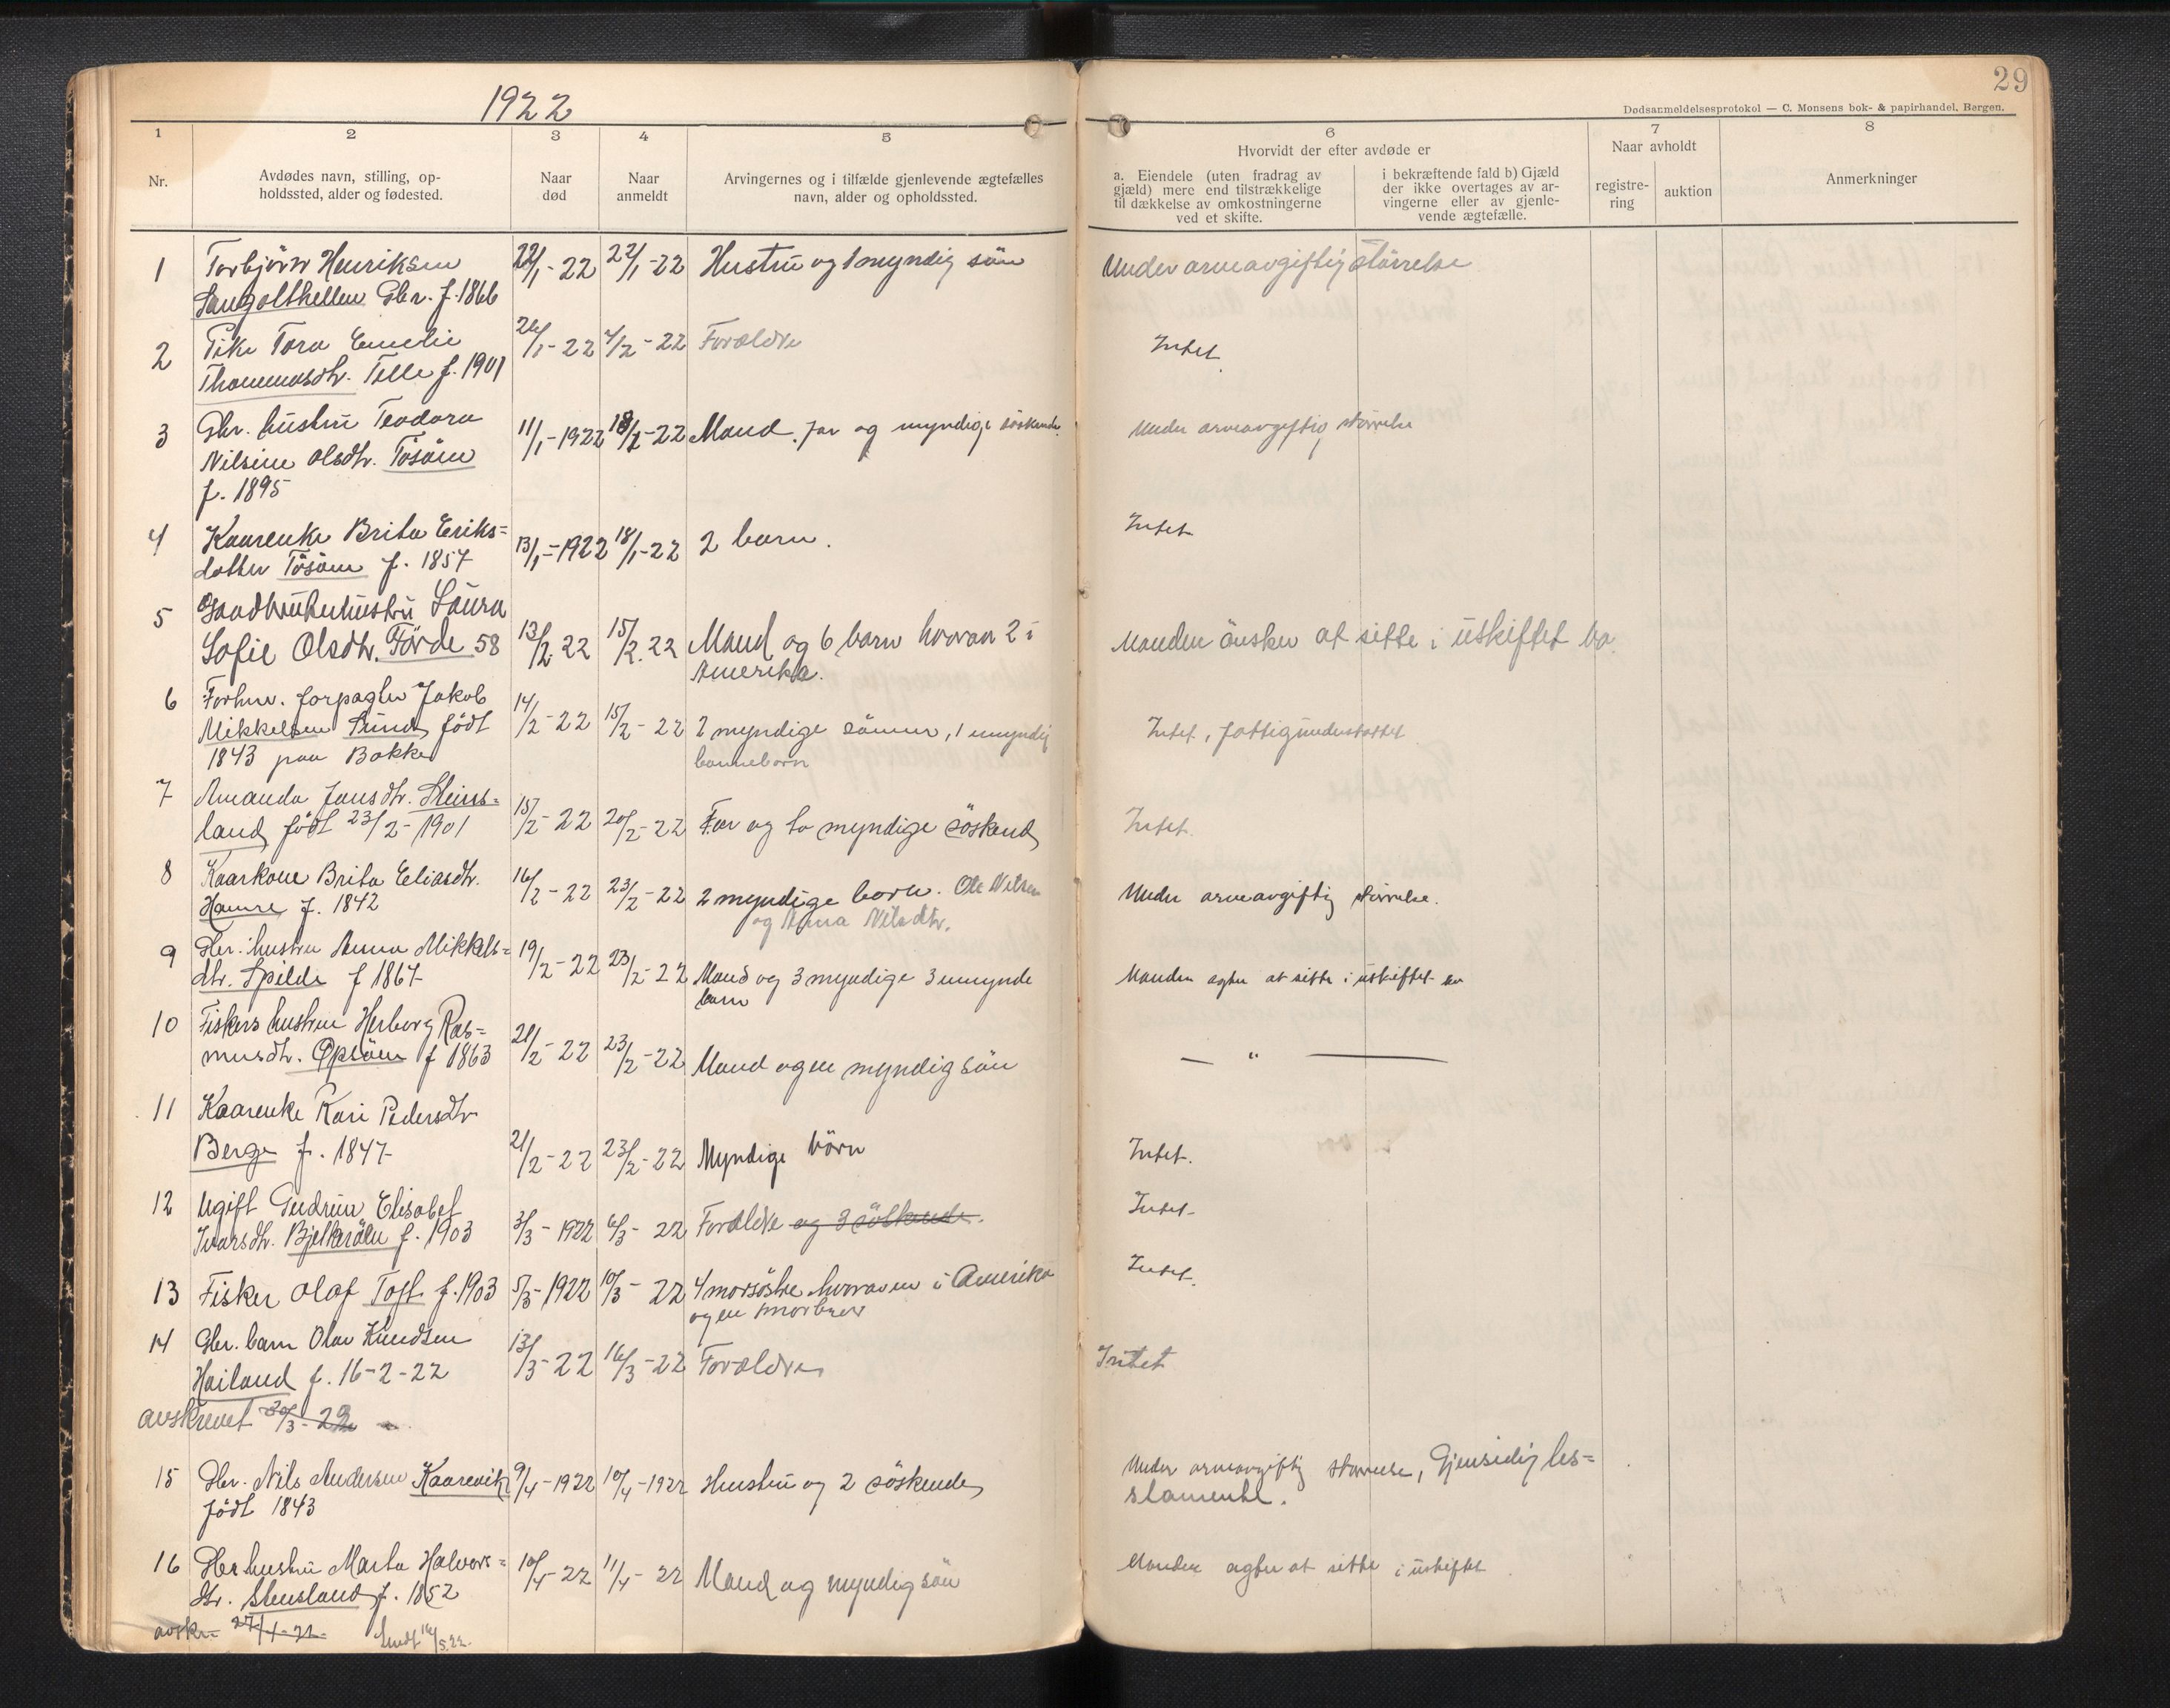 1922
29
Dødsanmeldelsesprotokol — C. Monsens bok- & papirhandel, Bergen.
1 2 3 4 5 6 7 8
Nr.
Avdødes navn, stilling, op-
holdssted, alder og fødested.
Naar
død
Naar
anmeldt
Arvingernes og i tilfælde gjenlevende ægtefælles
navn, alder og opholdssted.
Hvorvidt der efter avdøde er
a. Eiendele (uten fradrag av
gjæld) mere end tilstrækkelige
til dækkelse av omkostningerne
ved et skifte.
i bekræftende fald b) Gjæld
der ikke overtages av ar-
vingerne eller av gjenle-
vende ægtefælle.
Naar avholdt
registre-
ring
auktion
Anmerkninger
1 Torbjörn Henriksen 22/1-22 22/1-22 Hustru og 1 myndig sön Under arveavgiftig större​lse
Gbr. f. 1866
2 Pike Tora Emelie 26/1-22 4/2-22 Forældre Intet
Thommasdtr. Telle f. 1901
3 Gbr. hustru Teodora 11/1-1922 18/1-22 Mand, far og myndige söskende Under arveavgiftig större​lse
Nilsine Olsdtr. Tösöin
f. 1895
4 Kaarenke Brita Eriks= 13/1-1922 18/1-22 2 barn. Intet
dotter Tösöin f. 1857
5 Gaardbrukerhustru Laura
Sofie Olsdtr. Förde 58 13/2.22 15/2.22 Mand og 6 barn hvorav 2 i Manden önsker at sitte i uskiftet bo.
Amerika.
6 Forhv. forpagter Jakob 14/2-22 15/2-22
Mikkelsen Sund, födt 2 myndige sönner, 1 umyndig Intet, fattigunderstöttet
1843 paa Bokke barnebarn
7 Amanda Jansdtr. Steins=
land, födt 23/2-1901 15/2-22 20/2-22 Far og to myndige söskend Intet.
8 Kaarkone Brita Eliasdtr. 16/2-22 23/2-22 2 myndige born. Ole Nilsen Under arveavgiftig större​lse.
Hamre f. 1842 og Anna Nilsdtr.
9 Gbr. hustru Anna Mikkels= 19/2-22 23/2-22
dtr. Spilde f 1867 Mand og 3 myndige 3 umynde Manden agter at sitte i uskiftet bo
barn
10 Fiskers hustru Herborg Ras=
musdtr. Opsöin f 1863 21/2-22 23/2-22 Mand og en myndig sön — " —
11 Kaarenke Kari Pedersdtr
Berge f. 1847 21/2-22 23/2-22 Myndige börn Intet.
12 Ugift Gudrun Elisabet Intet
Ivarsdtr. f. 1903 3/3-1922 6/3-22 Forældre og 3 söskende.
13 Fisker Olaf Toft f. 1903 5/3-1922 10/3-22 4 morsöstre hvorav en i Amerika Intet.
og en morbror
14 Gbr. barn Olav Knudsen
Hailand f. 16-2-22 13/3-22 16/3-22 Forældre Intet
avskrevet 20/3-22
15 Gbr. Nils Andersen Kaarevik 9/4-1922 10/4-1922 Hustru og 2 söskende Under arveavgiftig större​lse, Gjensidig tes=
födt 1843 stamente.
16 Gbr hustru Marta Halvors= 10/4-22 11/4-22 Mand og myndig sön Manden agter at sitte i uskiftet
dtr. Stensland f. 1852
avskr. 27/4-22 Sendt 16/5.22.